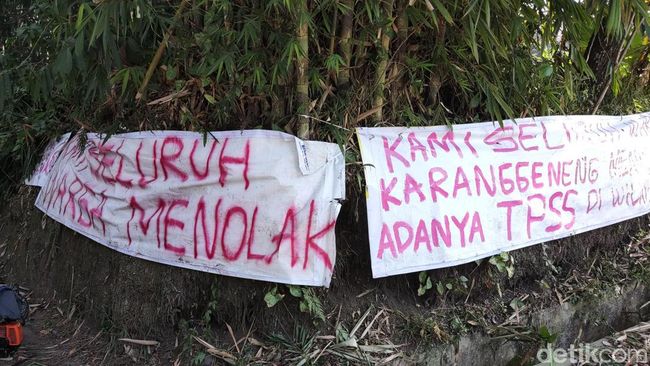 SELURUH
WARGA MENOLAK
KAMI SEL
KARANGGENENG
ADANYA TPSS DI WILA
detikcom